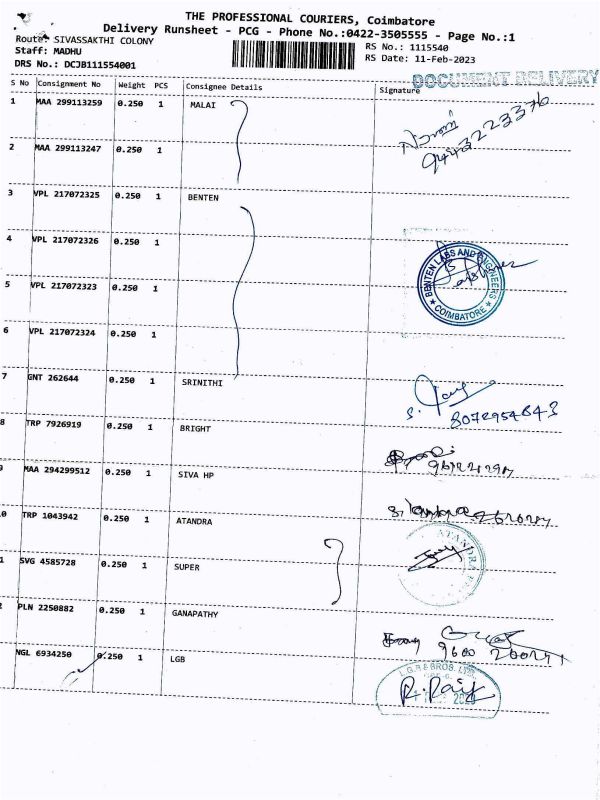 THE PROFESSIONAL COURIERS, Coimbatore
Delivery Runsheet - PCG - Phone No.:0422-3505555 - Page No.:1
Route: SIVASSAKTHI COLONY
RS No.: 1115540
Staff: MADHU
RS Date: 11-Feb-2023
DRS No.: DCJB111554001
DOCUMENT DELIVERY
S No Consignment No Weight PCS Consignee Details Signature
1 MAA 299113259 0.250 1 MALAI
9443223376
2 MAA 299113247 0.250 1
3 VPL 217072325 0.250 1 BENTEN
4 VPL 217072326 0.250 1
BENTEN LABS AND ENGINEERS
★ COIMBATORE ★
5 VPL 217072323 0.250 1
6 VPL 217072324 0.250 1
7 GNT 262644 0.250 1 SRINITHI
8072954843
8 TRP 7926919 0.250 1 BRIGHT
9 MAA 294299512 0.250 1 SIVA HP
0 TRP 1043942 0.250 1 ATANDRA
ATANDRA
1 SVG 4585728 0.250 1 SUPER
2 PLN 2250882 0.250 1 GANAPATHY
NGL 6934250 0.250 1 LGB
L.G.B & BROS. LTD.